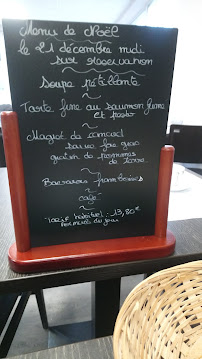 Menu de Noël
le 21 décembre midi
sur réservation
Soupe pétillante
Tarte fine au saumon fumé
et pesto
Magret de canard
sauce foie gras
gratin de pommes
de terre
Bavarois framboises
café
Tarif habituel : 13,80€
formule du jour